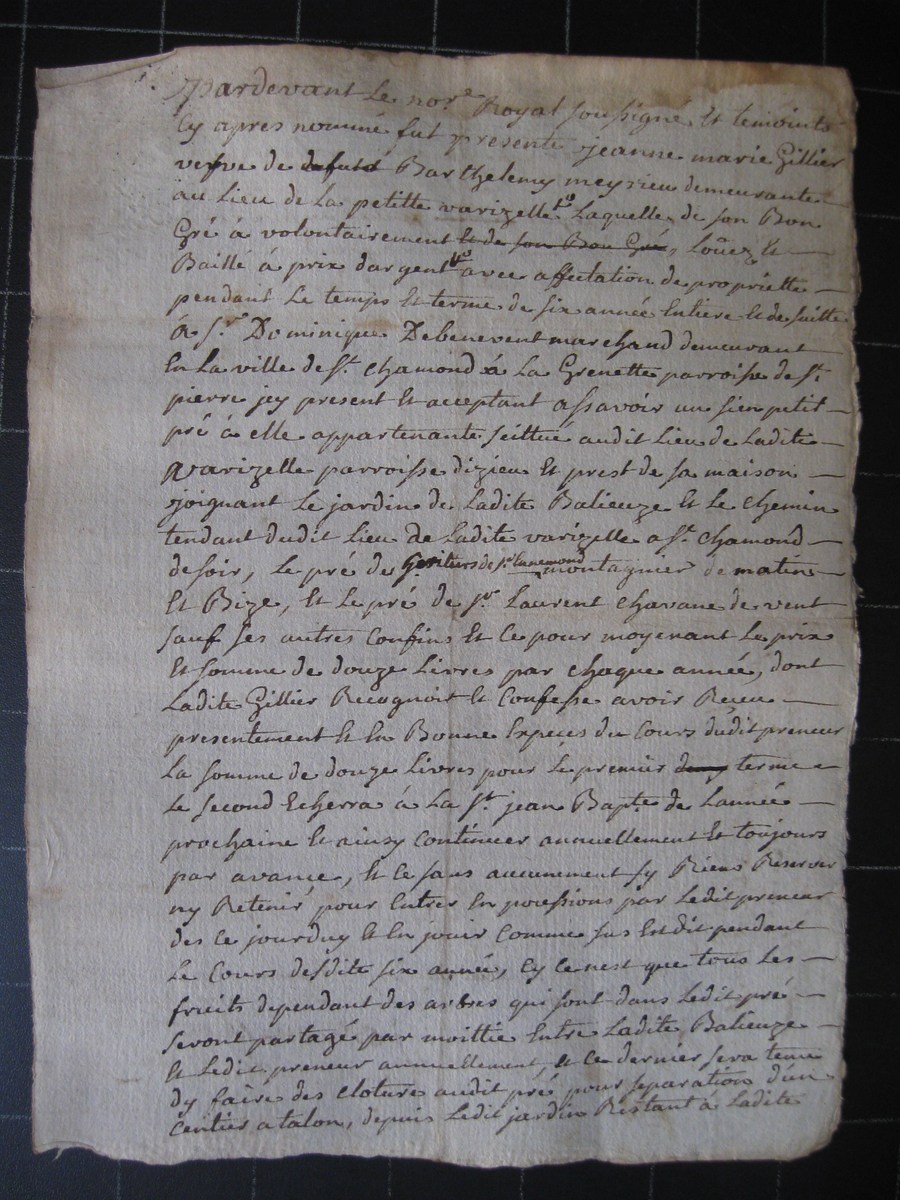 Pardevant Le nore Royal soussigné Et temoints
Cy apres nommé fut presente jeanne marie Gillier
vefve de defunt Barthelemy meyrieu demeurante
au Lieu de La petitte varizelle Laquelle de son Bon
Gré à volontairement Et de son Bon Gré, Loûez Et
Baillé à prix dargent avec affectation de propriette
pendant Le temps Et terme de six année Entiere Et de suitte
à Sr. Dominique Debenevent marchand demeurant
En La ville de St. chamond à La Grenette parroisse de St.
pierre jcy present Et acceptant assavoir un sien petit
pré à elle appartenante scittué audit Lieu de Ladite
varizelle parroisse dizieu Et prest de sa maison
joignant Le jardin de Ladite Balieuze Et Le chemin
tendant dudit Lieu de Ladite varizelle a St. chamond
de soir, Le pré de heritiers de Sr Ennemond montagnier de matin
Et Bize, Et Le pré de Sr. Laurent chavane de vent
sauf ses autres Confins Et Ce pour moyenant Le prix
Et somme de douze Livres par chaque année, dont
Ladite Gillier Recognoit Et Confesse avoir Receu
presentement Et En Bonne Especes du Cours dudit preneur
La somme de douze Livres pour Le premier terme
Le second Echerra à La St. jean Bapte. de Lannée
prochaine Et ainsy Continuer annuellement Et toujours
par avance, Et Ce sans aucunement sy Riens Reserver
ny Retenir pour Entrer En possessions par Ledit preneur
des Ce jourduy Et En jouir Comme sus Est dit pendant
Le Cours desdite six année, Cy Ce nest que tous Les
fruits dependant des arbres qui sont dans Ledit pré
seront partagé par moittie Entre Ladite Balieuze
Et Ledit preneur annuellement, et Ce dernier sera tenu
dy faire des Cloture audit pré pour separation d'un
Centier a talon, depuis Ledit jardin Restant à Ladite